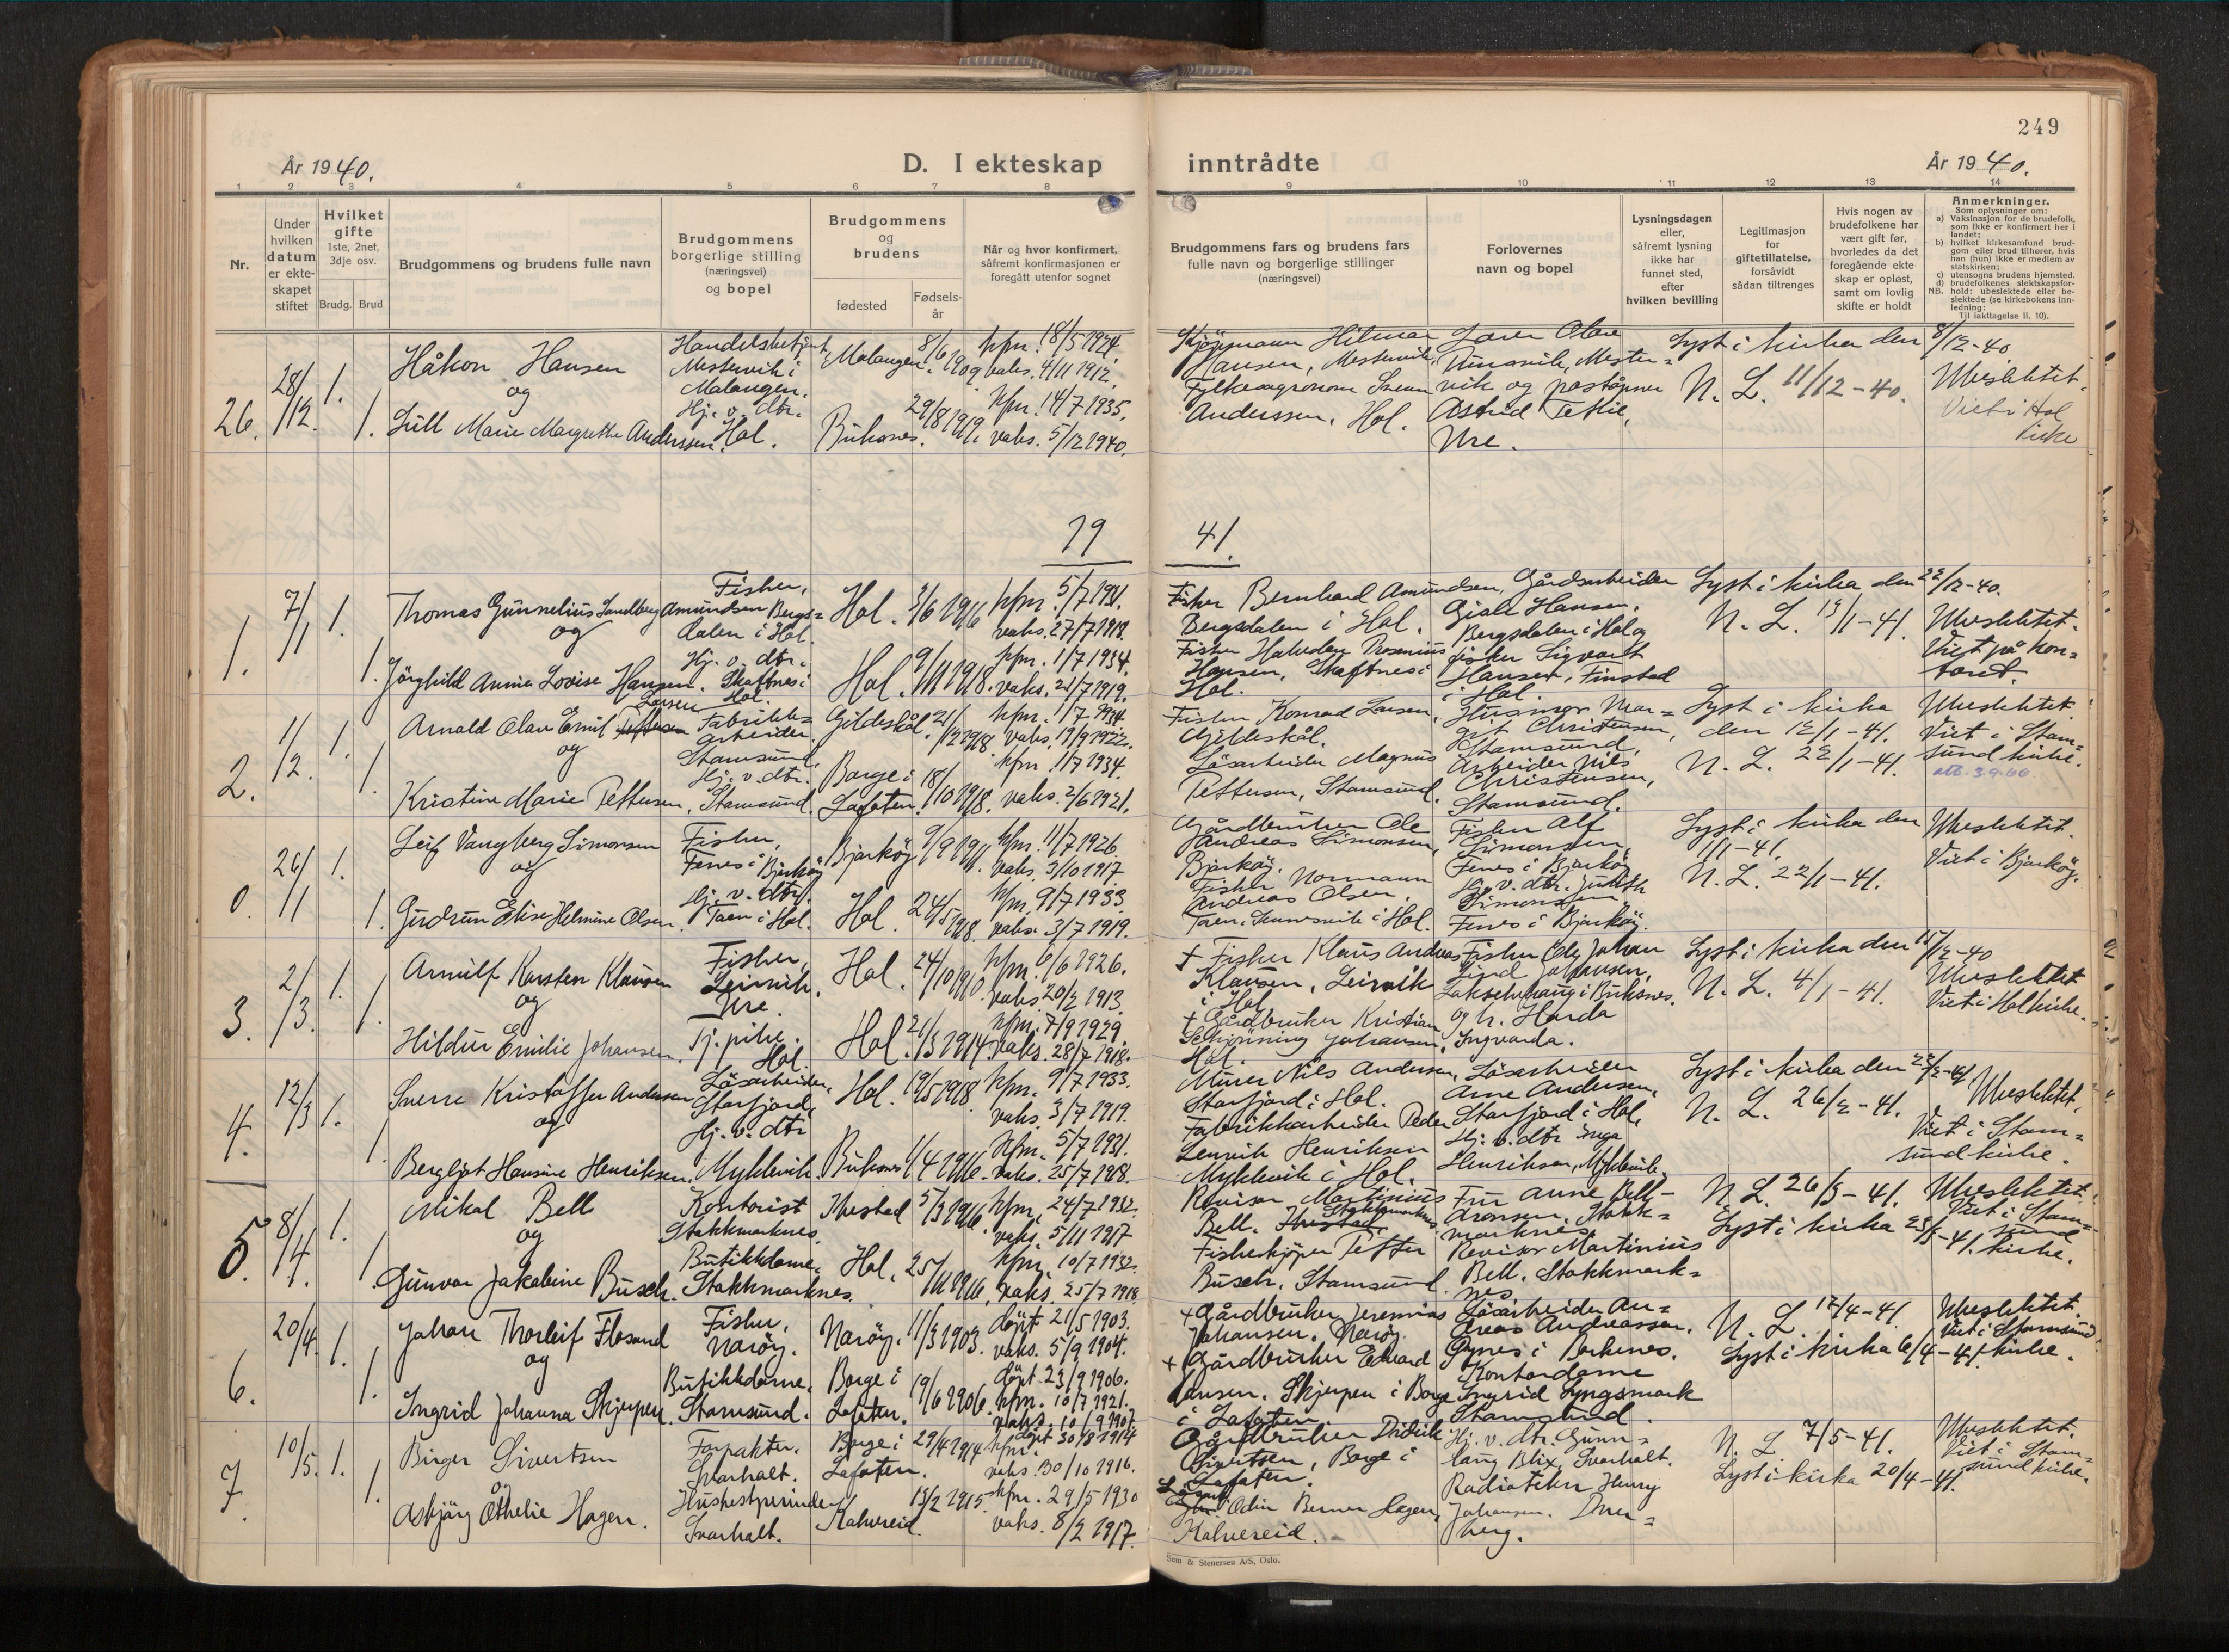 249
År 1940.
D. I ekteskap
inntrådte
År 1940.
1 2 3 4 5 6 7 8 9 10 11 12 13 14
Nr.
Under hvilken datum er ekteskapet stiftet
Hvilket gifte
1ste, 2net, 3dje osv.
Brudg. Brud
Brudgommens og brudens fulle navn
Brudgommens borgerlige stilling (næringsvei) og bopel
Brudgommens og brudens
fødested
Fødselsår
Når og hvor konfirmert, såfremt konfirmasjonen er foregått utenfor sognet
Brudgommens fars og brudens fars fulle navn og borgerlige stillinger (næringsvei)
Forlovernes navn og bopel
Lysningsdagen eller, såfremt lysning ikke har funnet sted, efter hvilken bevilling
Legitimasjon for giftetillatelse, forsåvidt sådan tiltrenges
Hvis nogen av brudefolkene har vært gift før, hvorledes da det foregående ekteskap er opløst, samt om lovlig skifte er holdt
Anmerkninger.
Som oplysninger om:
a) Vaksinasjon for de brudefolk, som ikke er konfirmert her i landet;
b) hvilket kirkesamfund brudgom eller brud tilhører, hvis han (hun) ikke er medlem av statskirken;
c) utensogns brudens hjemsted.
d) brudefolkenes slektskapsforhold: ubeslektede eller beslektede (se kirkebokens innledning:
NB.
Til iakttagelse II. 10).
26. 28/12. 1. 1.
Håkon Hansen
og
Lull Marie Margrethe Anderssen.
Handelsbetjent
Mestervik i
Malangen.
Hj. v. dtr.
Hol.
Malangen. 8/6 1909
Buksnes. 29/8 1919.
kfm. 18/5 1924.
vaks. 4/11 1912.
kfm. 14/7 1935.
vaks. 5/12 1940.
Kjøpmann Hilmar
Hansen, Mestervik.
Fylkesagronom
Anderssen, Hol.
vik og poståpner
Astrid
Ure.
Lyst i kirka den 8/12-40.
N. L. 11/12-40.
Ubeslektet.
Viet i Hol
kirke
19 41.
1. 7/1 1. 1.
Thomas Gunnelius Sandberg Amundsen
og
Jörghild Anna Lovise Hansen.
Fisker,
Bergsdalen i Hol.
Hj. v. dtr.
Skaftnes i
Hol.
Hol. 3/6 1916
Hol. 9/11 1918.
kfm. 5/7 1931.
vaks. 27/7 1918.
kfm. 1/7 1934.
vaks. 21/7 1919.
Fisker Bernhard Amundsen,
Bergsdalen i Hol.
Fisker Halvdan
Hansen, Skaftnes i
Hol.
Gårdsarbeider
Hansen,
Bergsdalen i Hol og
fisker Sigvart
Hansen, Finstad
i Hol.
Lyst i kirka den 22/12-40.
N. L. 13/1-41.
Ubeslektet.
Viet på kontoret.
2. 1/2. 1. 1.
Arnald Olav Emil Larsen
og
Kristine Marie Pettersen,
Fabrikkarbeider.
Stamsund.
Hj. v. dtr.
Stamsund.
Gildeskål. 21/12 1918
Borge i Lofoten. 18/10 1918.
kfm. 1/7 1934
vaks. 19/9 1922.
kfm. 1/7 1934.
vaks. 2/6 1921.
Fisker Konrad Larsen,
Gildeskål.
Løsarbeider Magnus
Pettersen, Stamsund.
Husmor Margit Christensen,
Stamsund,
Arbeider Nils
Christensen,
Stamsund.
Lyst i kirka
den 12/1-41.
N. L. 22/1-41.
Ubeslektet.
Viet i Stamsund kirke.
0 26/1 1. 1.
Leif Vangberg Simonsen
og
Gudrun Elise Helmine Olsen.
Fisker,
Fenes i Bjarköy
Hj. v. dtr.
Taen i Hol.
Bjarköy 9/9 1911.
Hol. 24/5 1918.
kfm. 11/7 1926.
vaks. 3/10 1917
kfm. 9/7 1933.
vaks. 3/7 1919.
Gårdbruker Ole
Andreas Simonsen,
Bjarköy.
Fisker Normann
Andreas Olsen,
Fisker Alf
Simonsen,
Fenes i Bjarköy
Hj. v. dtr. Judith
Simonsen,
Fenes i Bjarköy.
Lyst i kirka den
1/1-41.
N. L. 22/1-41.
Ubeslektet.
Viet i Bjarköy.
3. 2/3. 1. 1.
Arnulf Karsten Klausen
og
Hildur Emilie Johansen.
Fisker,
Leirvik,
Ure.
Tj. pike.
Hol.
Hol. 24/10 1910.
Hol. 21/3 1914
kfm. 6/6 1926.
vaks 20/2 1913.
kfm. 7/9 1929.
vaks. 28/7 1918.
+ Fisker Klaus Andreas
Klausen, Leirvik
i Hol
+ Gårdbruker Kristian
Schjönning Johansen,
Hol.
Fisker Ole Johan
Lind Johansen,
i Buksnes.
og h. Harda
Ingvarda.
Lyst i kirka den 15/12-40
N. L. 4/1-41.
Ubeslektet
Viet i Hol kirke.
4. 12/3 1. 1.
Sverre Kristoffer Andersen
og
Bergljot Hansine Henriksen.
Løsarbeider,
Storfjord,
Hj. v. dtr
Myklevik.
Hol. 19/5 1918
Buksnes 1/4 1916.
kfm. 9/7 1933.
vaks. 3/7 1919.
kfm. 5/7 1931.
vaks. 25/7 1918.
Murer Nils Andersen,
Storfjord i Hol.
Fabrikkarbeider Peder
Lenvik Henriksen
Myklevik i Hol.
Løsarbeider
Arne Andersen,
Storfjord i Hol,
Hj. v. dtr Inga
Henriksen, Myklevik.
Lyst i kirka den
N. L. 26/2-41.
Ubeslektet.
Viet i Stamsund kirke.
5. 8/4. 1. 1
Mikal Bell
og
Gunvor Jakobine Busch.
Kontorist
Stokkmarknes.
Butikkdame,
Stokkmarknes.
Ibestad 5/3 1916.
Hol. 25/11 1916.
kfm. 24/7 1932.
vaks. 5/11 1917
kfm. 10/7 1932.
vaks. 25/7 1918.
Revisor Martinius
Bell. Ibestad Stokkmarknes
Fiskekjöper Petter
Busch. Stamsund.
Fru Anne Bell-
Aronsen. Stokkmarknes
Revisor Martinius
Bell. Stokkmarknes
N. L. 26/3-41.
Lyst i kirka 23/3-41.
Ubeslektet.
Viet i Stamsund kirke.
6. 20/4. 1. 1.
Johan Thorleif Flosand
og
Ingrid Johanna Skjerpen.
Fisker,
Naröy.
Butikkdame,
Stamsund.
Naröy. 11/3 1903.
Borge i Lofoten. 19/6 1906.
döpt 21/5 1903.
vaks. 5/9 1904.
döpt 23/9 1906.
kfm. 10/7 1921.
vaks. 10/9 1907.
+ Gårdbruker Jeremias
Johansen. Naröy.
+ Gårdbruker Edvard
Hansen. Skjerpen i Borge
i Lofoten.
Løsarbeider Andreas Andreassen.
Kontordame
Ingrid Lyngsmark
Stamsund.
N. L. 17/4-41.
Lyst i kirka 6/4-41.
Ubeslektet.
Viet i Stamsund
kirke.
7. 10/5. 1. 1.
Birger Sivertsen
og
Asbjörg Othelie Hagen.
Forpakter.
Svarholt.
Husbestyrerinde
Svarholt.
Borge i Lofoten. 29/4 1914
13/2 1915
döpt 30/8 1914
kfm.
vaks. 30/10 1916.
kfm. 29/5 1930
vaks. 8/2 1917.
Gårdbruker Didrik
Sivertsen, Borge i
Lofoten.
Odin Berner Hagen,
Hj. v. dtr. Gunnlaug Blix, Svarholt.
Radiotekn Henry
Johansen.
N. L. 7/5-41.
Lyst i kirka 20/4-41.
Ubeslektet.
Viet i Stamsund kirke.
Sem & Stenersen A/S, Oslo.